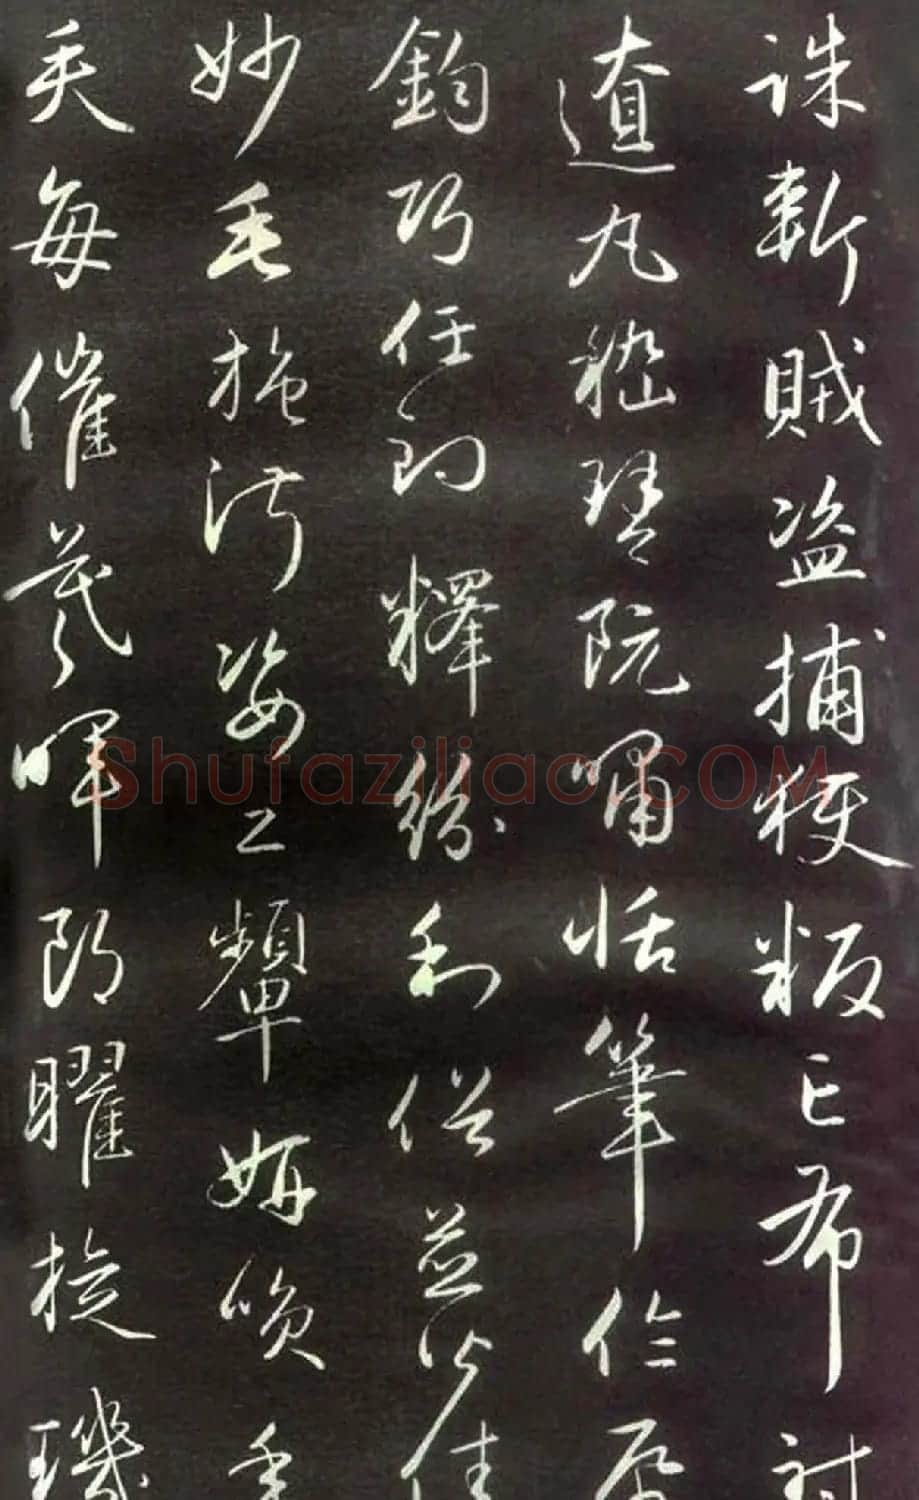 誅斬賊盜捕獲叛亡布射
遼丸嵇琴阮嘯恬筆倫紙
鈞巧任釣釋紛利俗並皆佳
妙毛施淑姿工顰妍笑年
矢每催羲暉朗曜旋璣
Shufaziliao.COM